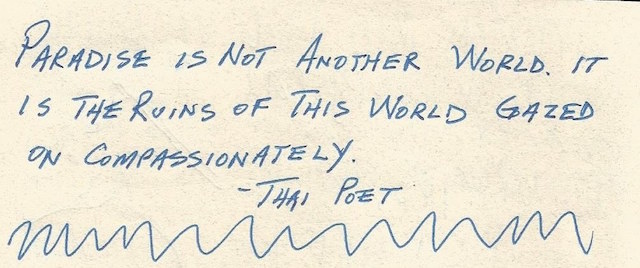 PARADISE IS NOT ANOTHER WORLD. IT
IS THE RUINS OF THIS WORLD GAZED
ON COMPASSIONATELY.
-THAI POET